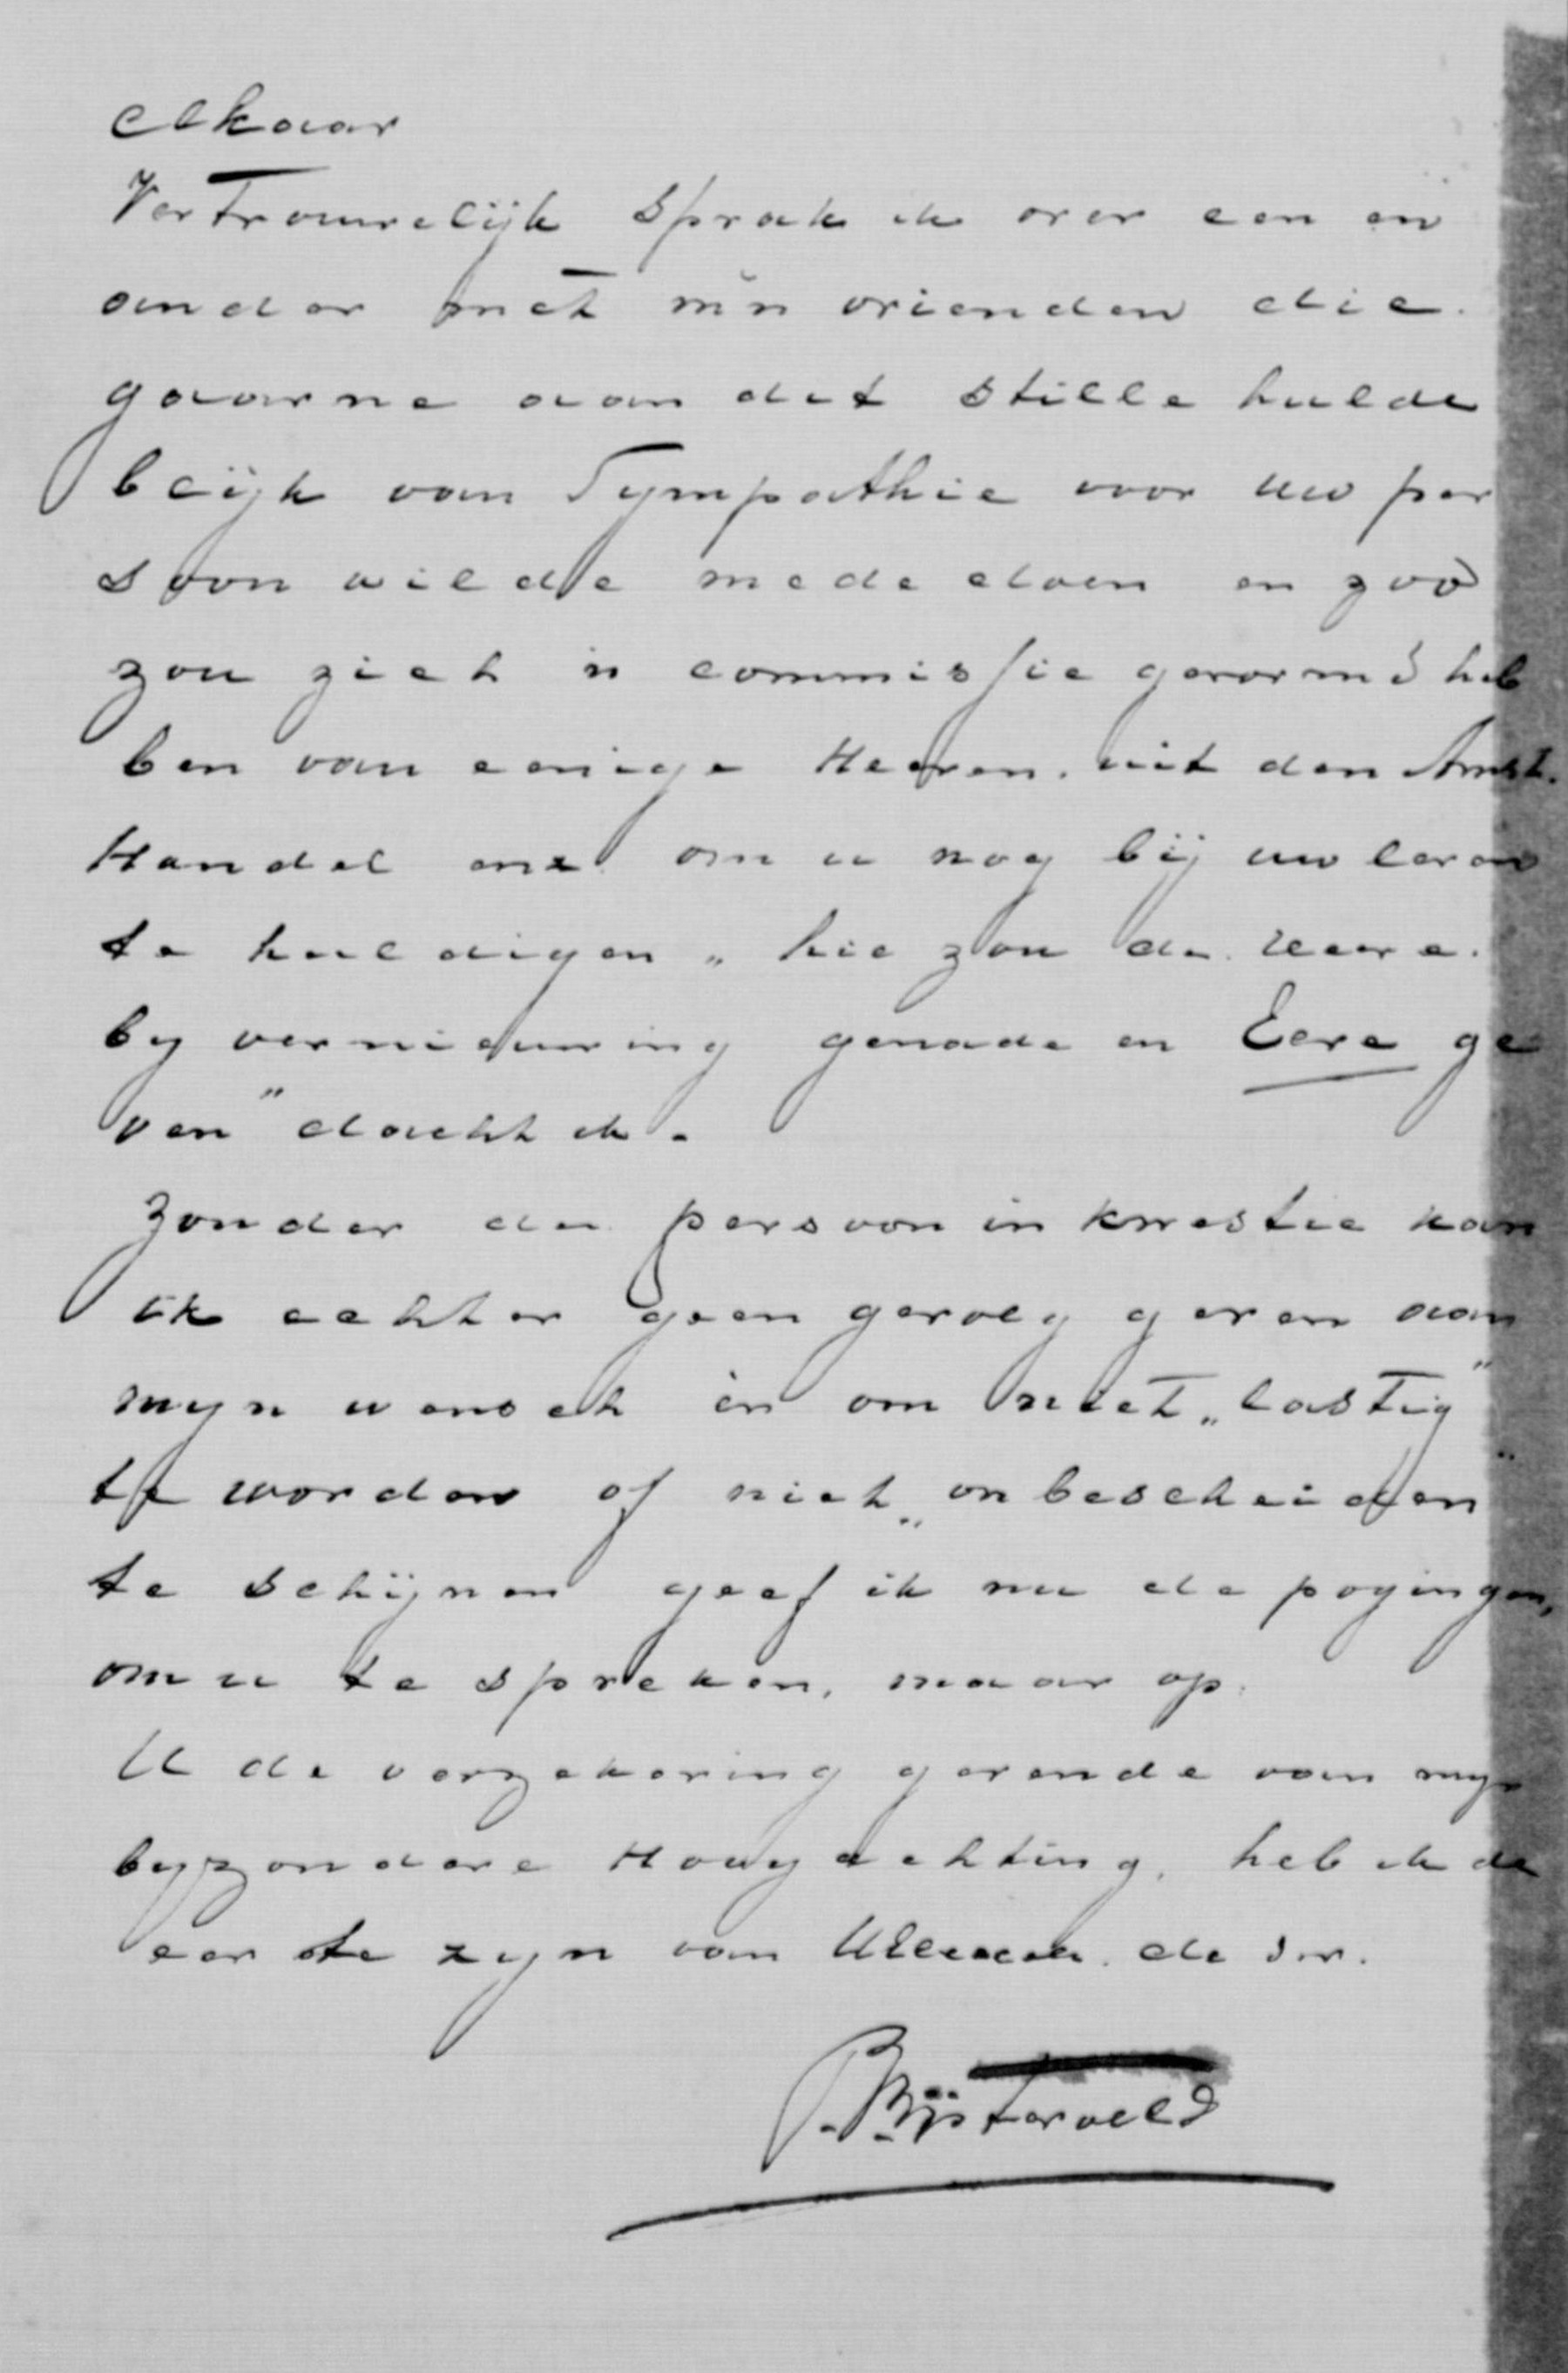 elkaar
Vertrouwelijk sprak ik over een en
ander met m'n vrienden die
gaarne aan dit stille hulde
blijk van Sympathie voor uw per
soon wilde mede doen en zoo
zou zich 'n commissie gevormd heb
ben van eenige Heeren uit den Amst.
Handel enz. om u nog bij uw leven
te huldigen „hie zou de Heere
by vernieuwing genade en Eere ge
ven" dacht ik.
Zonder den persoon in kwestie kan
ik echter geen gevolg geven aan
myn wensch èn om niet „lastig"
te worden of niet „onbescheiden"
te schijnen geef ik nu de pogingen,
om u te spreken, maar op.
U de verzekering gevende van myn
byzondere Hoogachting, heb ik de
eer te zyn van de dr.
P. Bijsterveld